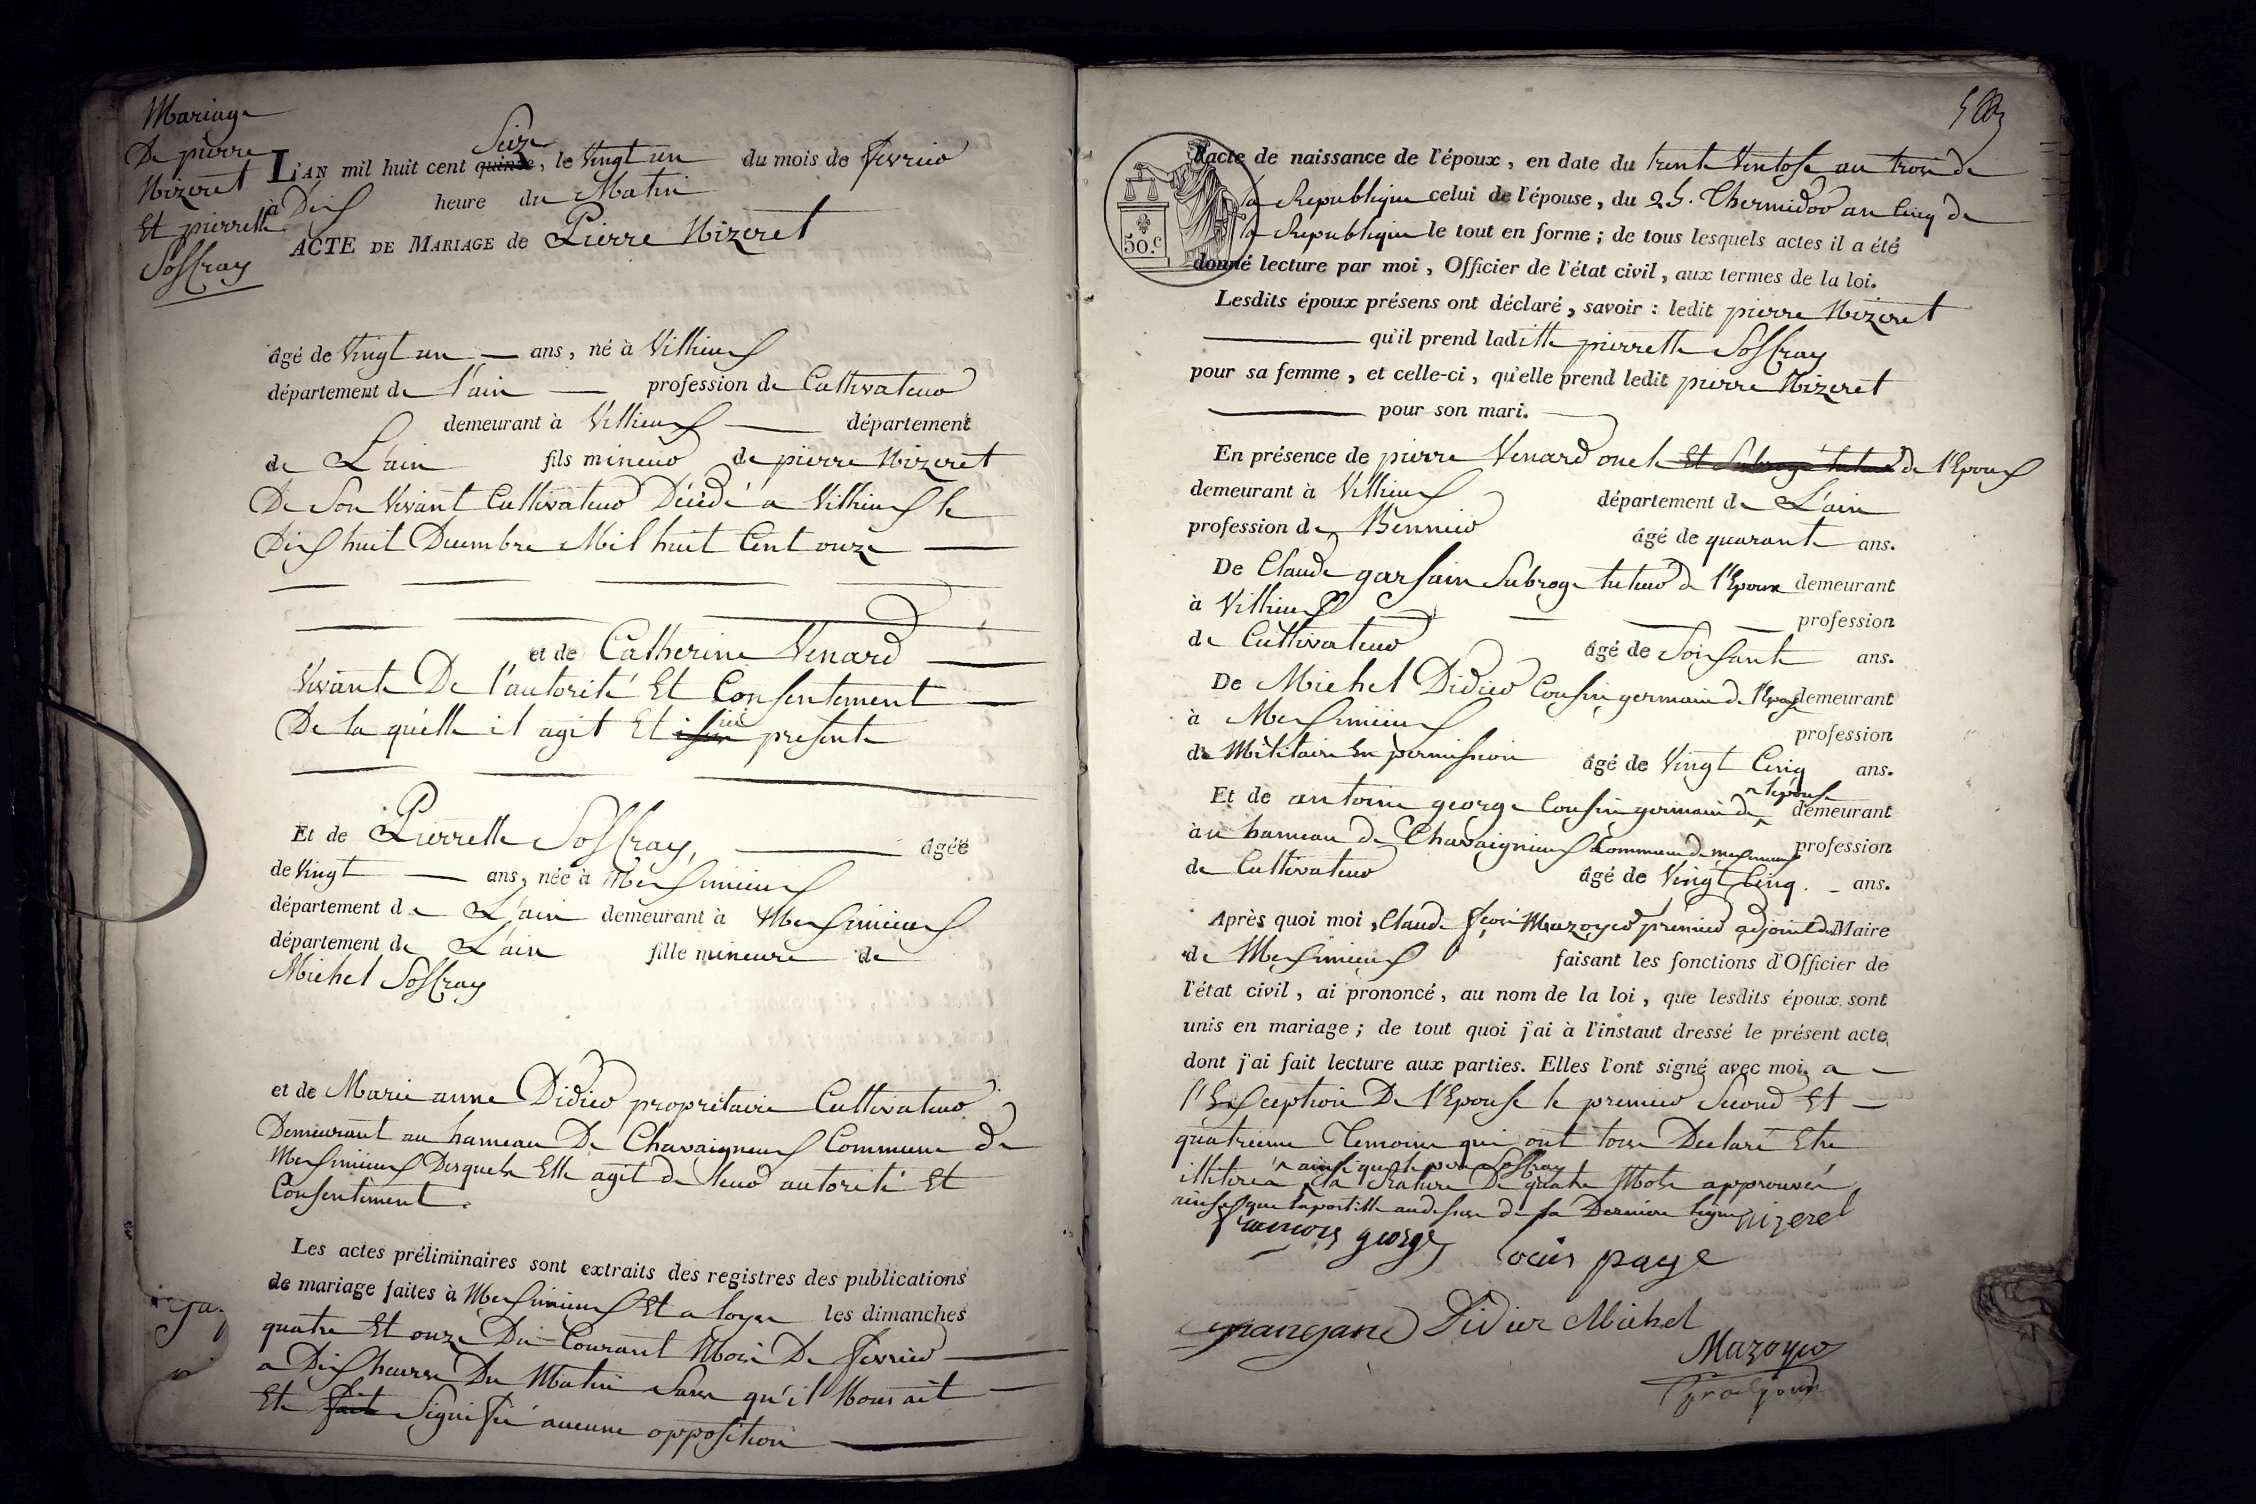 Mariage
De pierre
Nizeret
Et pierrette
Soffray
L'AN mil huit cent quinze, Seize, le Vingt un du mois de fevrier
à Dix heure du Matin
ACTE DE MARIAGE de Pierre Nizeret
âgé de Vingt un ans, né à Villieux
département de l'ain profession de Cultivateur
demeurant à Villieux département
de L'ain fils mineur de pierre Nizeret
De Son Vivant Cultivateur Décédé a Villieux le
Dix huit Decembre Mil huit Cent onze
et de Catherine Venard
Vivante De l'autorité Et Consentement
De la quelle il agit Et ici presente
Et de Pierrette Soffray, âgée
de Vingt ans, née à Meximieux
département de L'ain demeurant à Meximieux
département de L'ain fille mineure de
Michel Soffray
et de Marie anne Didier propriétaire Cultivateur
Demeurant au hameau De Chavaigneux Commune de
Meximieux Desquels Elle agit de leur autorité Et
Consentement.
Les actes préliminaires sont extraits des registres des publications
de mariage faites à Meximieux Et a loyes les dimanches
quatre Et onze Du Courant Mois De fevrier
a Dix heures Du Matin Sans qu'il Nous ait
Eté fait Signifié aucune opposition
50.c
l'acte de naissance de l'époux, en date du trente Ventose an trois de
la Republique celui de l'épouse, du 25. Thermidor an Cinq de
la Republique le tout en forme; de tous lesquels actes il a été
donné lecture par moi, Officier de l'état civil, aux termes de la loi.
Lesdits époux présens ont déclaré, savoir: ledit pierre Nizeret
qu'il prend laditte pierrette Soffray
pour sa femme, et celle-ci, qu'elle prend ledit pierre Nizeret
pour son mari.
En présence de pierre Venard oncle Et Subrogé tuteur de l'Epoux
demeurant à Villieux département de L'ain
profession de âgé de quarante ans.
De Claude garfain Subroge tuteur de l'Epoux demeurant
à Villieux profession
de Cultivateur âgé de Soixante ans.
De Michel Didier Cousin germain de l'Epouse demeurant
à Meximieux profession
de Militaire En permission âgé de Vingt Cinq ans.
Et de antoine george Cousin germain de l'epouse demeurant
au hameau de Chavaigneux Commune de meximieux profession
de Cultivateur âgé de Vingt Cinq. ans.
Après quoi moi, Claude Mazoyer premier adjoint du Maire
de Meximieux faisant les fonctions d'Officier de
l'état civil, ai prononcé, au nom de la loi, que lesdits époux sont
unis en mariage; de tout quoi j'ai à l'instant dressé le présent acte
dont j'ai fait lecture aux parties. Elles l'ont signé avec moi, a
l'Exception De l'Epouse le premier Second Et
quatrieme Temoins qui ont tous Declaré Etre
illiterés ainsi que le pere Soffray la Rature De quatre Mots approuvés
ainsi que lapostille au dessus de la Derniere ligne nizeret
francois george Louis page
Didier Michel
Mazoyer